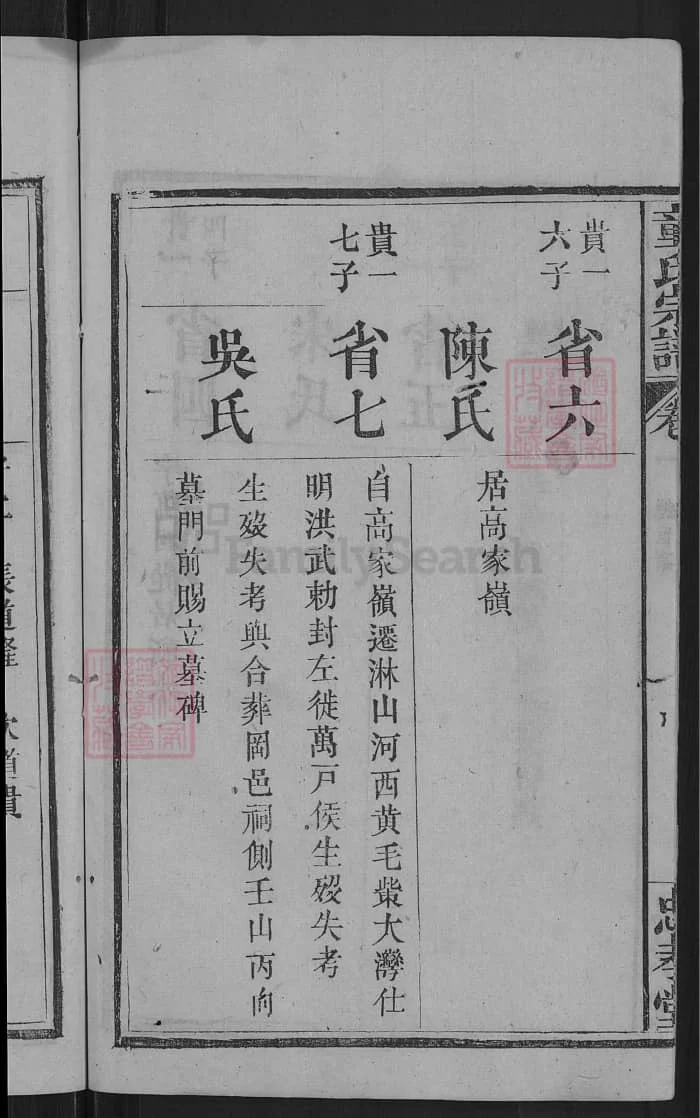 氏宗譜
卷
忠孝堂
貴一
六子
省六
陳氏
居高家嶺
貴一
七子
省七
自高家嶺遷淋山河西黃毛柴大灣仕
明洪武勅封左徙萬戸侯生殁失考
吳氏
生殁失考與合葬岡邑祠側壬山丙向
墓門前賜立墓碑
FamilySearch